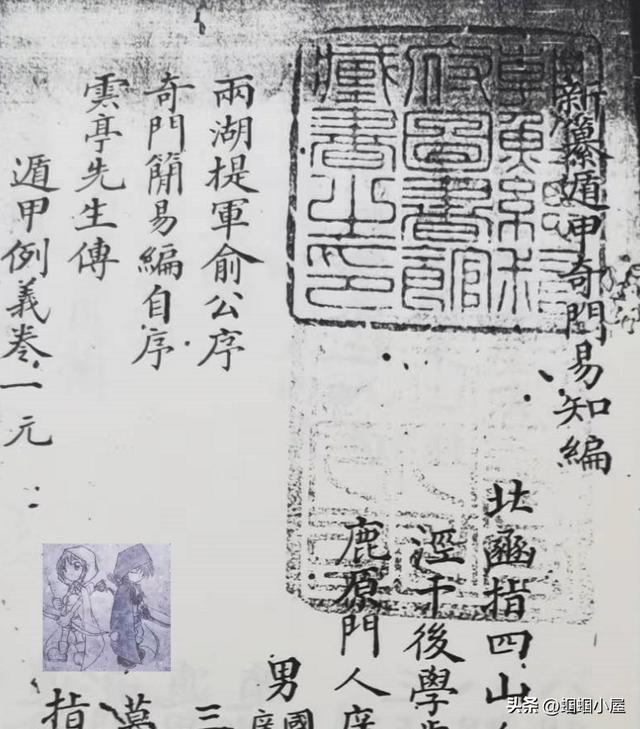 新纂遁甲奇門易知編
北極指四山
涇干後學
鹿原門人
男國
兩湖提軍俞公序
奇門簡易編自序
雲亭先生傳
遁甲例義卷一元
三
指
圖書館
藏書之印
头条 @蝈蝈小屋